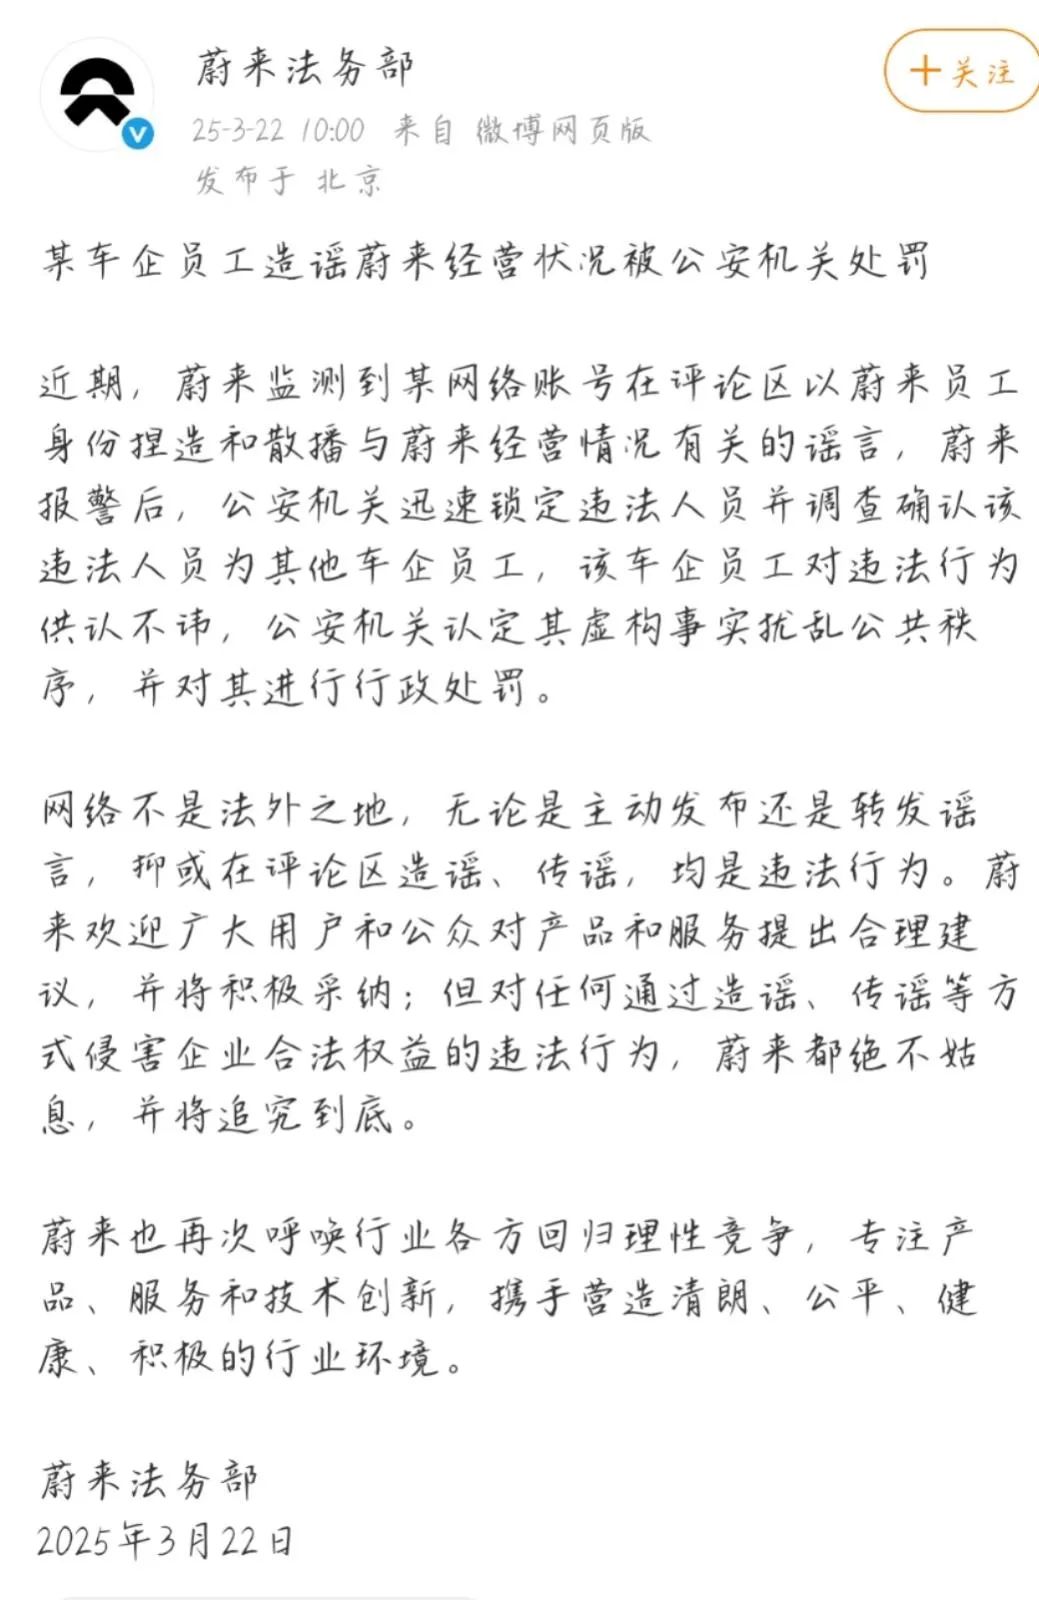 蔚来法务部
+关注
25-3-22 10:00 来自 微博网页版
发布于 北京
某车企员工造谣蔚来经营状况被公安机关处罚
近期，蔚来监测到某网络账号在评论区以蔚来员工
身份捏造和散播与蔚来经营情况有关的谣言，蔚来
报警后，公安机关迅速锁定违法人员并调查确认该
违法人员为其他车企员工，该车企员工对违法行为
供认不讳，公安机关认定其虚构事实扰乱公共秩
序，并对其进行行政处罚。
网络不是法外之地，无论是主动发布还是转发谣
言，抑或在评论区造谣、传谣，均是违法行为。蔚
来欢迎广大用户和公众对产品和服务提出合理建
议，并将积极采纳；但对任何通过造谣、传谣等方
式侵害企业合法权益的违法行为，蔚来都绝不姑
息，并将追究到底。
蔚来也再次呼唤行业各方回归理性竞争，专注产
品、服务和技术创新，携手营造清朗、公平、健
康、积极的行业环境。
蔚来法务部
2025年3月22日